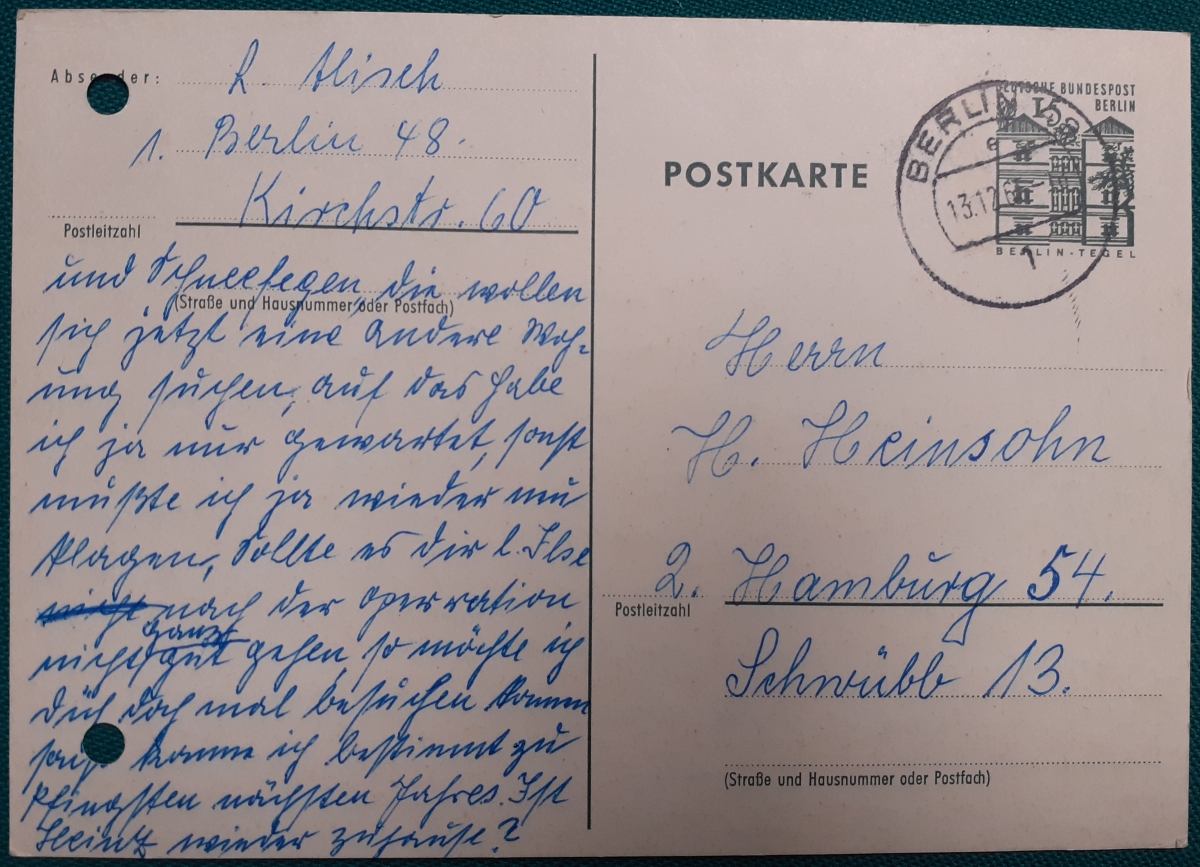 Absender: R. Alisch
1. Berlin 48.
Kirchstr. 60
Postleitzahl
(Straße und Hausnummer oder Postfach)
und Schneefegen, die wollen
sich jetzt eine andere Woh-
nung suchen, auf das habe
ich ja nur gewartet, sonst
müßte ich ja wieder neu
klagen, Sollte es dir l. Ilse
nach der operration
nicht ganz gut gehen, so möchte ich
dich doch mal besuchen kommen
sonst komme ich bestimmt zu
Pfingsten nächsten Jahres. Ist
Heintz wieder zuhause?
DEUTSCHE BUNDESPOST
BERLIN
BERLIN
13.12.6
1
BERLIN-TEGEL
POSTKARTE
Herrn
H. Heinsohn
2. Hamburg 54.
Postleitzahl
Schwübb 13.
(Straße und Hausnummer oder Postfach)